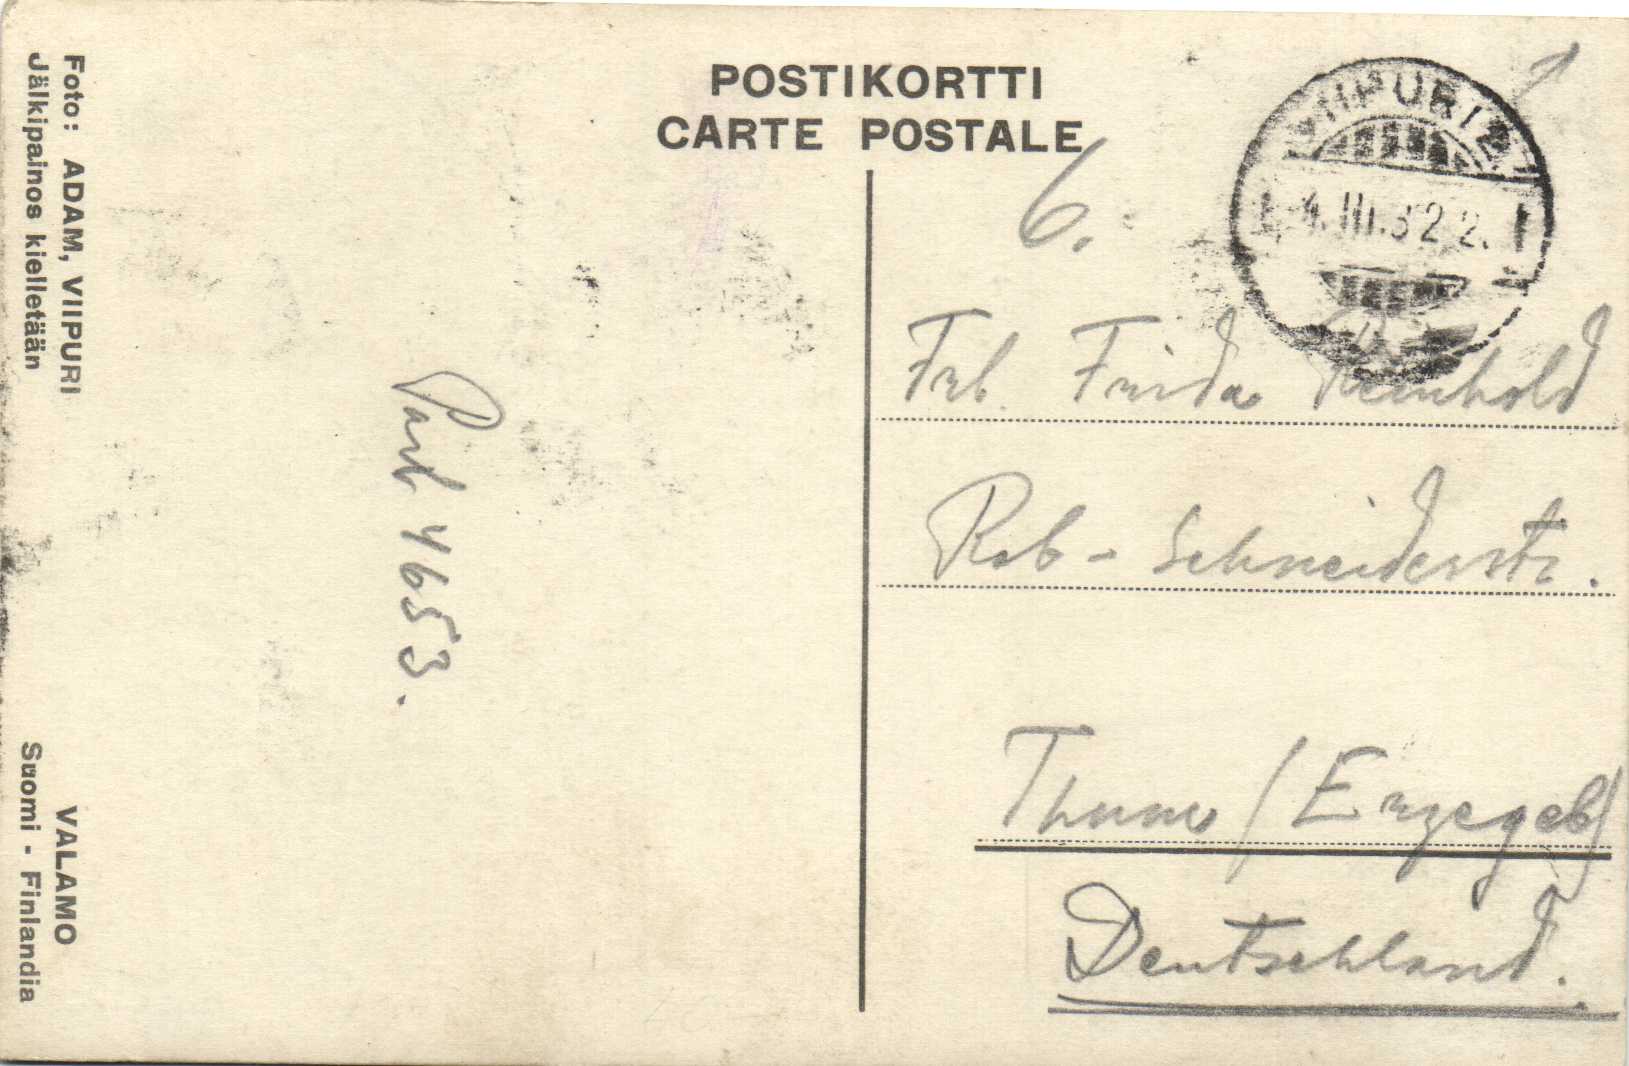 POSTIKORTTI
CARTE POSTALE
VIIPURI
4.III.32 2.
6.
Frl. Frida Reinhold
Rob-Schneiderstr.
Thum / Erzegeb/
Deutschland.
4653.
Foto: ADAM, VIIPURI
Jälkipainos kielletään
VALAMO
Suomi - Finlandia